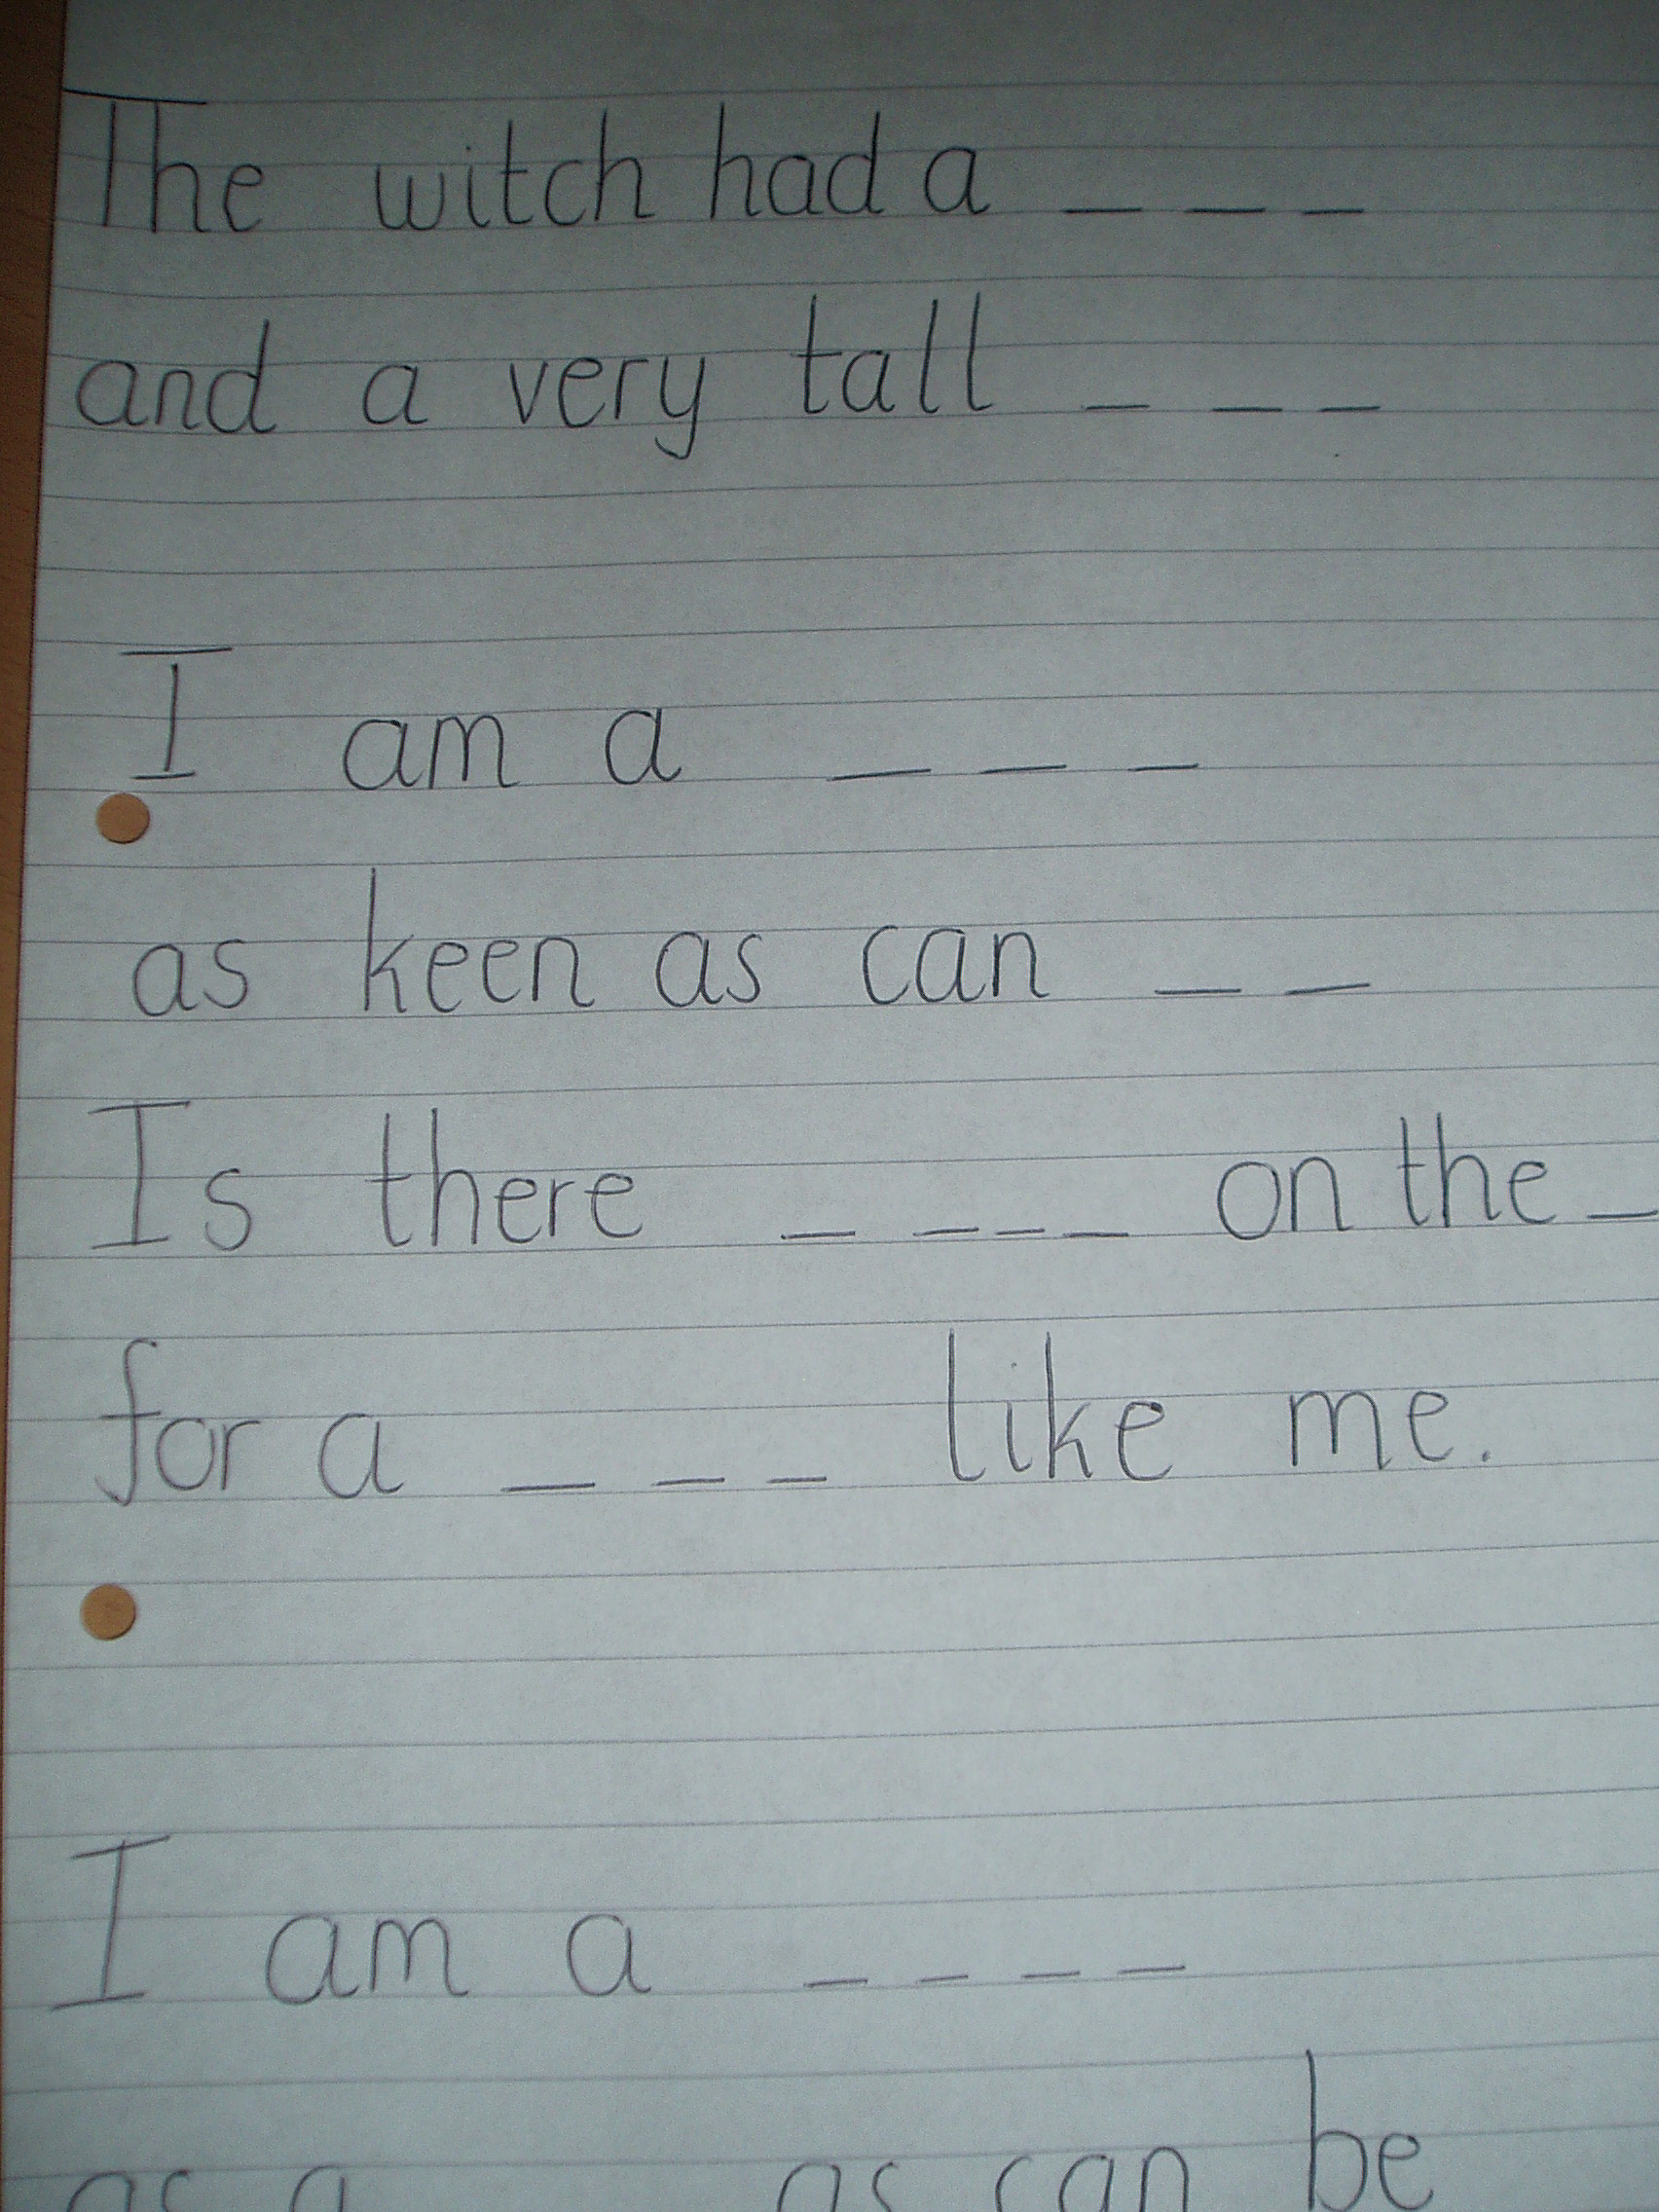 The witch had a _ _ _
and a very tall _ _ _
I am a _ _ _
as keen as can _ _
Is there _ _ _ _ on the _
for a _ _ _ like me.
I am a _ _ _ _
as a as can be